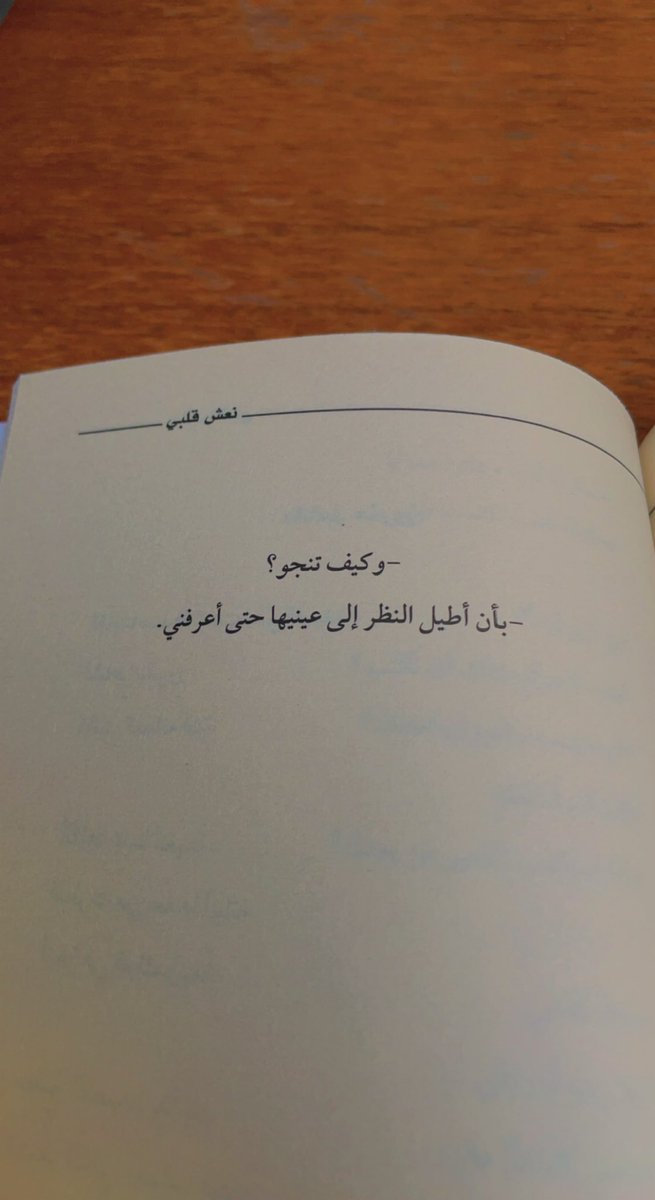 نعش قلبي
-وكيف تنجو؟
-بأن أطيل النظر إلى عينيها حتى أعرفني.